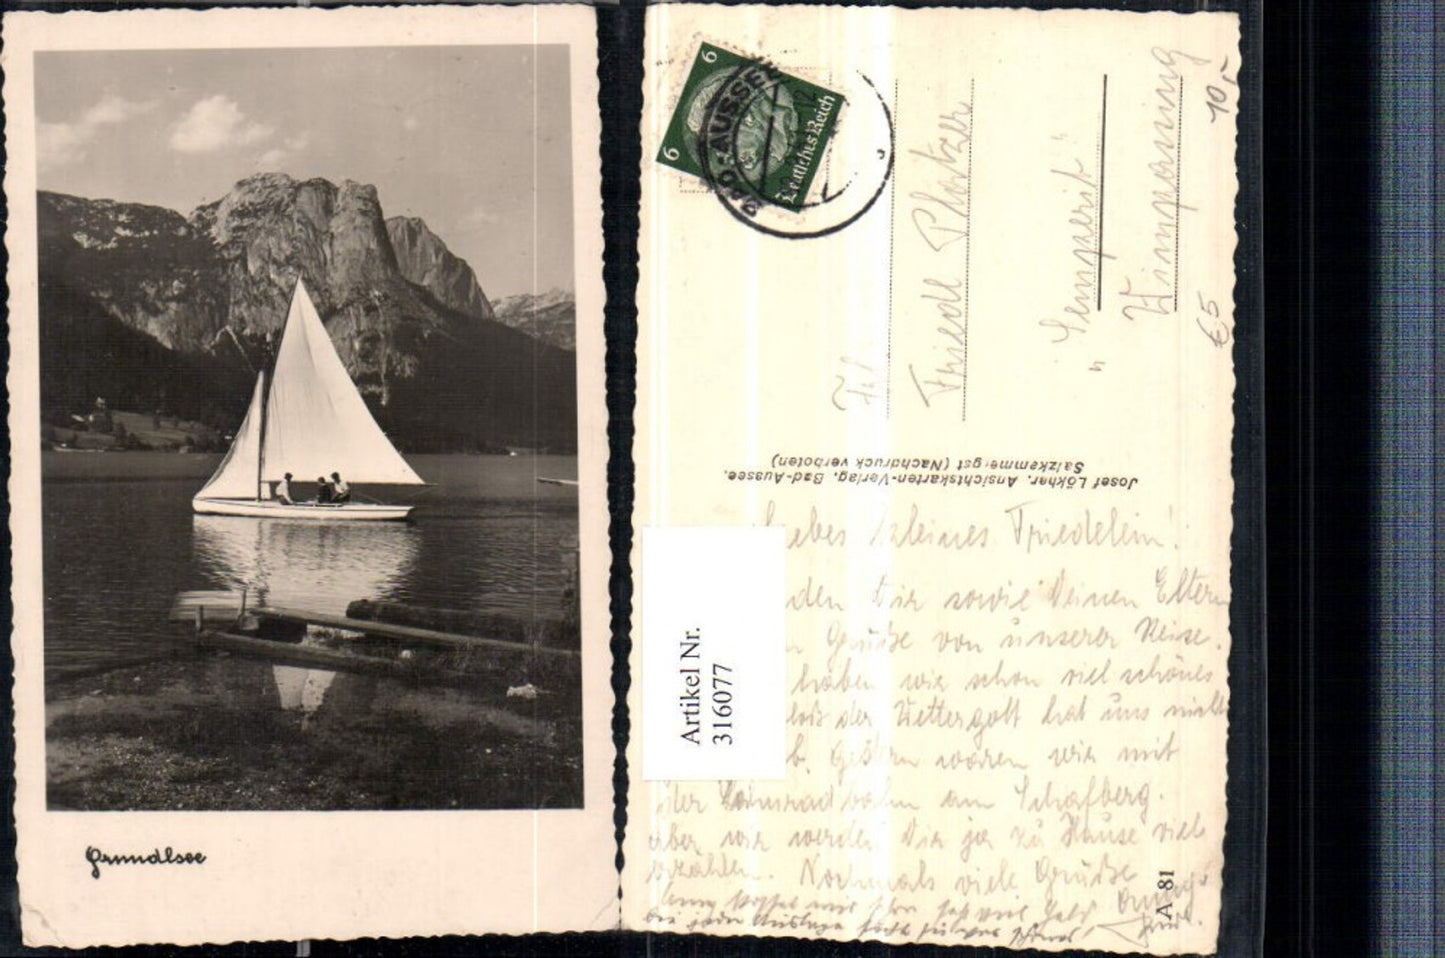 Grundlsee
6
6
Deutsches Reich
BAD-AUSSEE
Frl.
Friedl
"Semperit"
Wimpassing
10,-
€5
Josef Lökher, Ansichtskarten-Verlag, Bad-Aussee.
Salzkammergut (Nachdruck verboten)
Artikel Nr.
316077
kleines Friedelein!
Dir sowie Deinen Eltern
Grüße von unserer Reise.
haben wir schon viel schönes
der Wettergott hat uns nicht
Gestern waren wir mit
der Zahnradbahn am Schafberg.
aber wir werden Dir ja zu Hause viel
erzählen. Nochmals viele Grüße
viel Geld
A 81